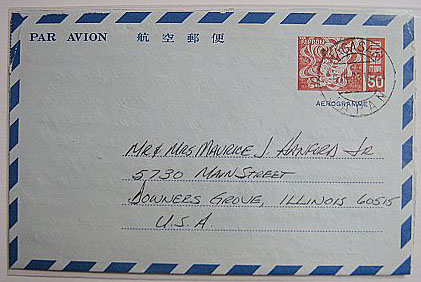 PAR AVION 航空郵便
50
AEROGRAMME
JAPAN
MR & MRS MAURICE J. HANFORD JR
5730 MAIN STREET
DOWNERS GROVE, ILLINOIS 60515
U.S.A.